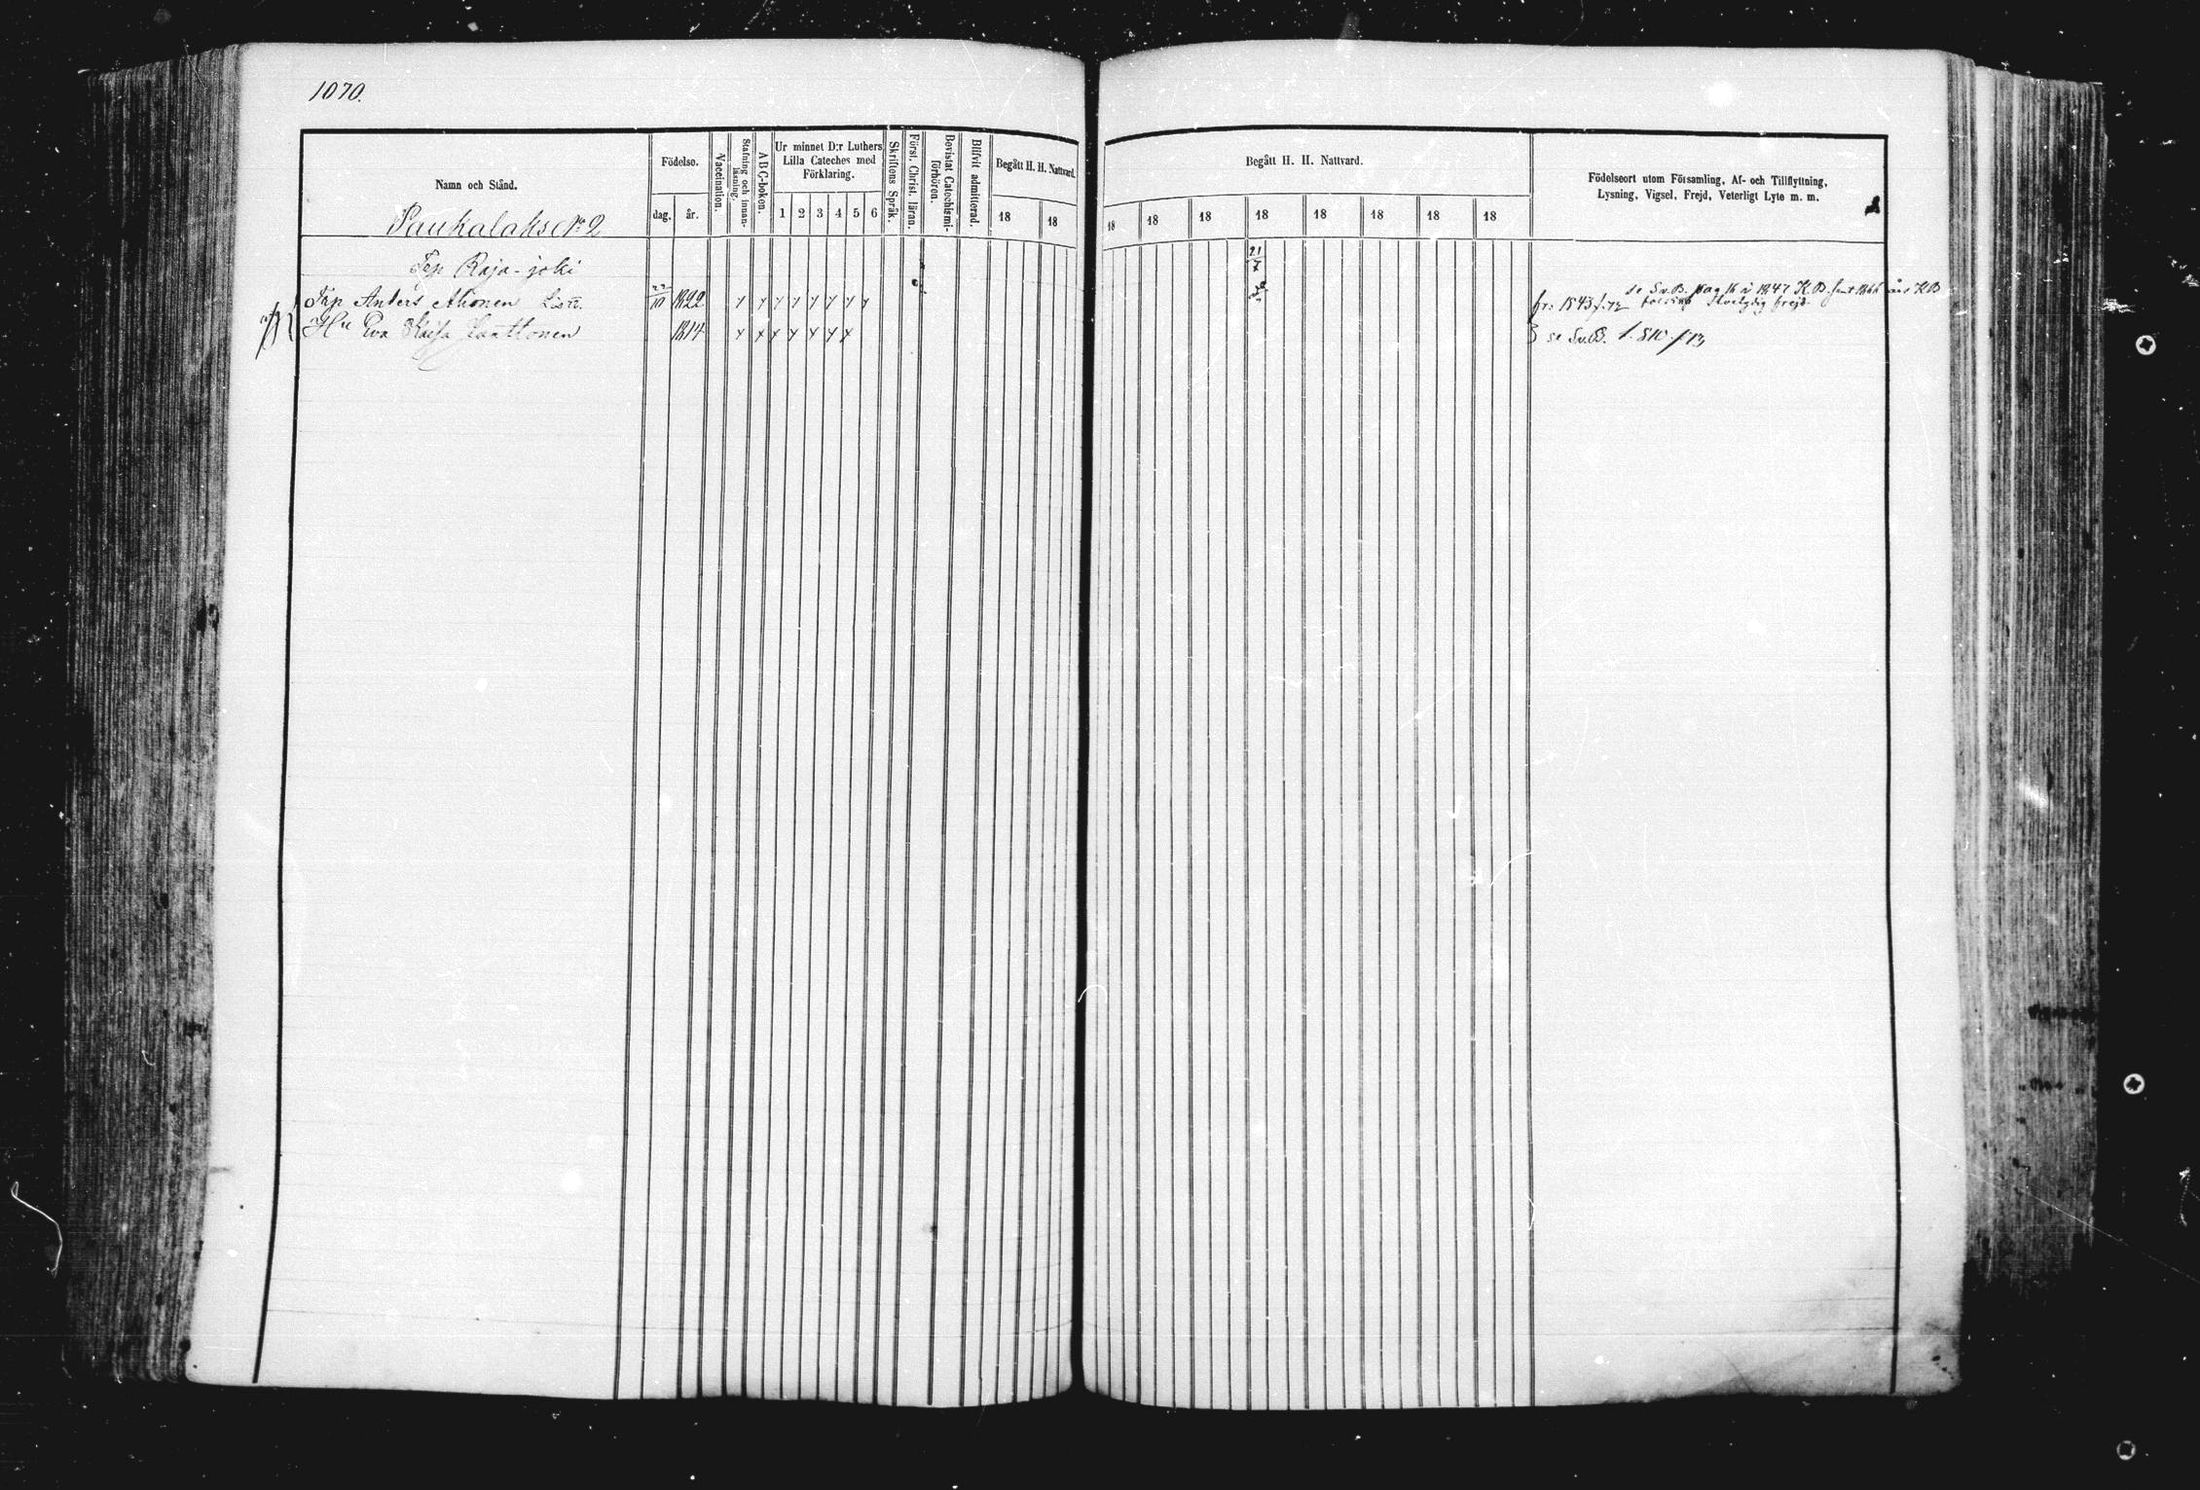 1070.
Namn och Stånd.
Födelse.
dag.
år.
Vaccination.
Stafning och innan-
läsning.
A B C-boken.
Ur minnet D:r Luthers
Lilla Cateches med
Förklaring.
1 2 3 4 5 6
Skriftens Språk.
Först. Christ. läran.
Bevistat Catechismi-
förhören.
Blifvit admitterad.
Begått H. H. Nattvard.
18 18
Begått H. H. Nattvard.
18 18 18 18 18 18 18 18
Födelseort utom Församling, Af- och Tillflyttning,
Lysning, Vigsel, Frejd, Veterligt Lyte m. m.
Paukalaks No 2
Tep Raja-joki
21/7
Anders Ahonen 10 1822 se S.v.B. pag 16 å 1847 K.B. samt 1866 års KB
fr. 1843 f. 72 frejd.
Hu Eva Kaisa 1814 se S.v.B. 1.810 / 73